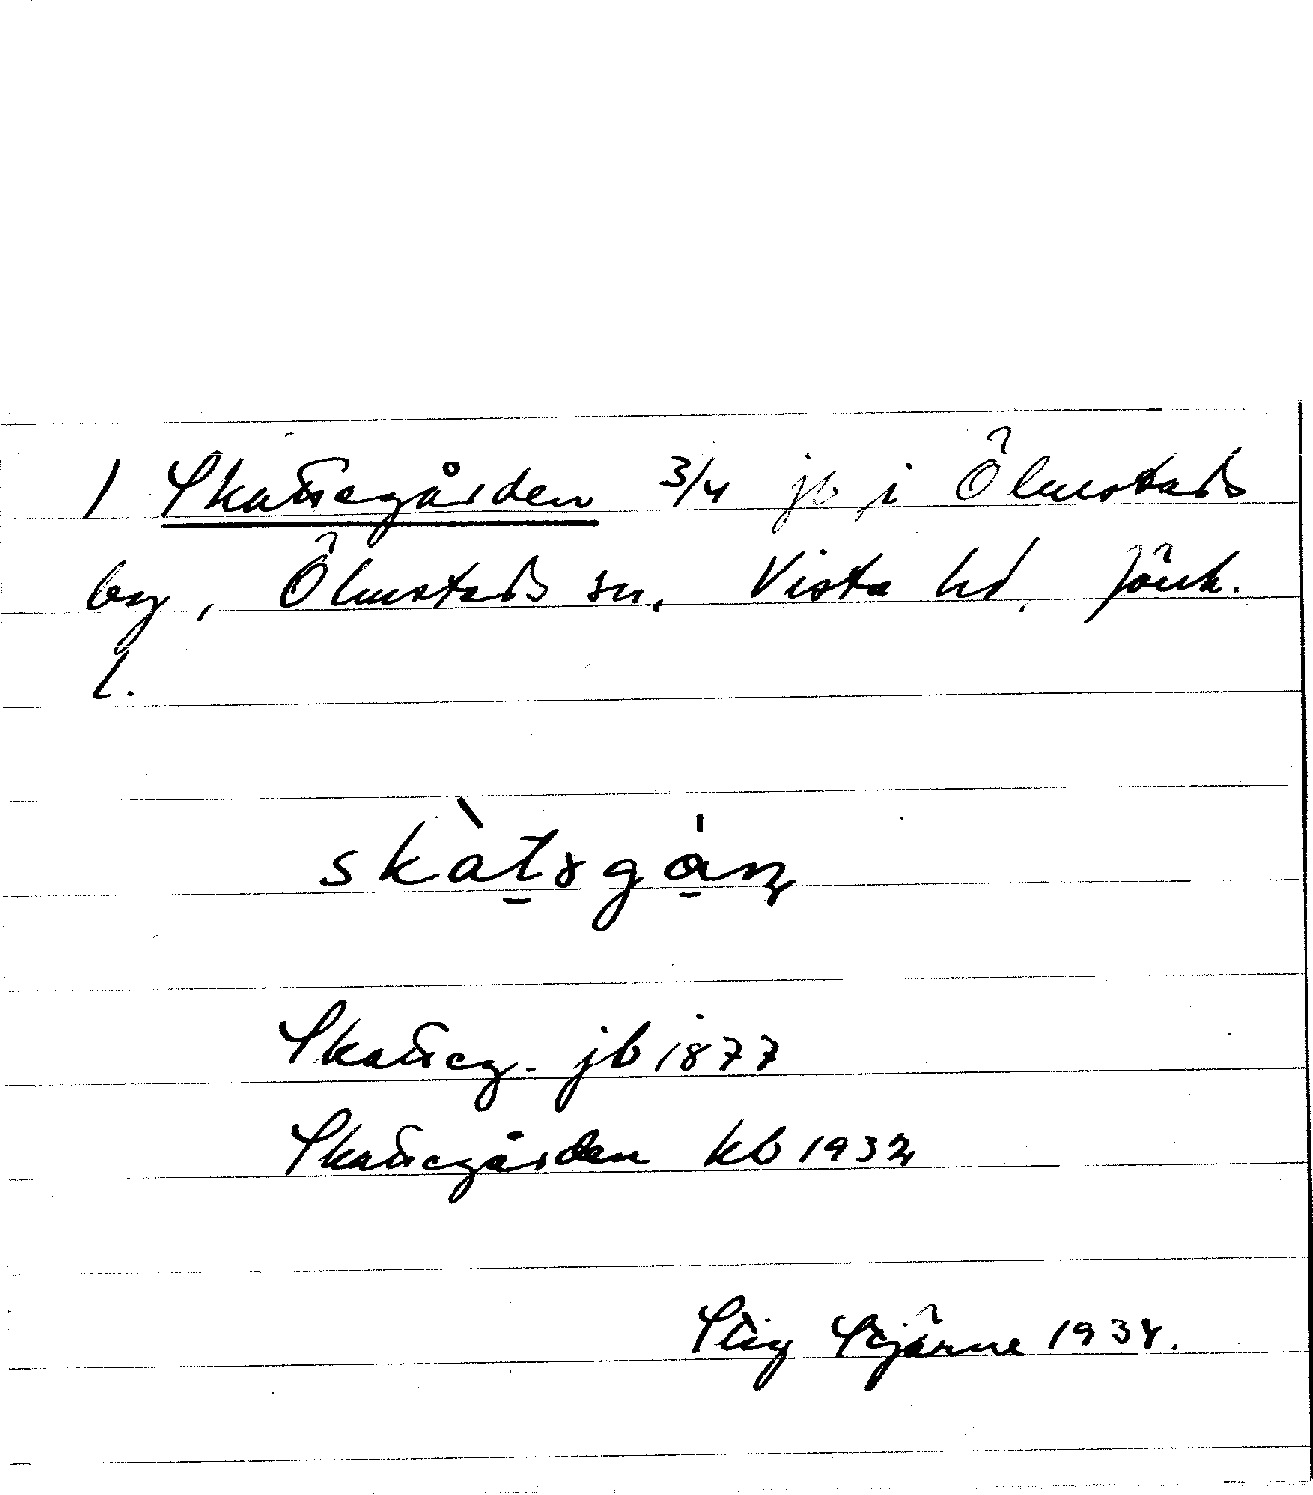 1 Skattegården 3/4 jb i Ölmstads
by, Ölmstads sn, Vista hd, Jönk.
l.
Skatteg. jb 1877
Skattegården kb 1932
Stig Stjärne 1934.